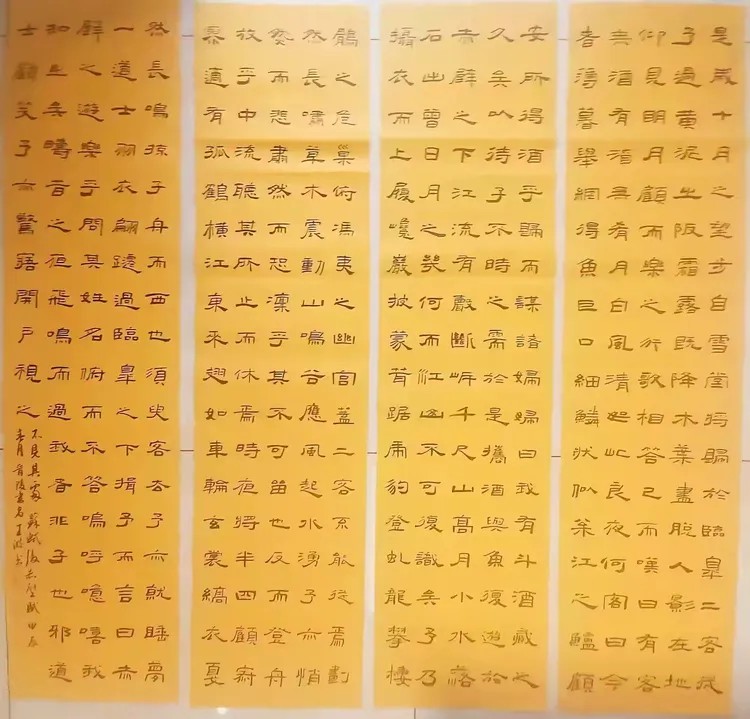 是歲十月之望步自雪堂將歸於臨皋二客从
予過黃泥之阪霜露既降木葉盡脫人影在地
仰見明月顧而樂之行歌相答已而嘆曰有客
無酒有酒無肴月白風清如此良夜何客曰今
者薄暮舉網得魚巨口細鱗狀似松江之鱸顧
安所得酒乎歸而謀諸婦婦曰我有斗酒藏之
久矣以待子不時之需於是攜酒與魚復遊於
赤壁之下江流有聲斷岸千尺山高月小水落
石出曾日月之幾何而江山不可復識矣予乃
攝衣而上履巉巖披蒙茸踞虎豹登虬龍攀棲
鶻之危巢俯馮夷之幽宮蓋二客不能從焉劃
然長嘯草木震動山鳴谷應風起水湧予亦悄
然而悲肅然而恐凜乎其不可留也反而登舟
放乎中流聽其所止而休焉時夜將半四顧寂
寥適有孤鶴橫江東來翅如車輪玄裳縞衣戛
然長鳴掠予舟而西也須臾客去予亦就睡夢
一道士羽衣翩躚過臨皋之下揖予而言曰赤
壁之遊樂乎問其姓名俯而不答嗚呼噫嘻我
知之矣疇昔之夜飛鳴而過我者非子也邪道
士顧笑予亦驚寤開戶視之
不見其處 蘇軾後赤壁賦 甲辰
春月